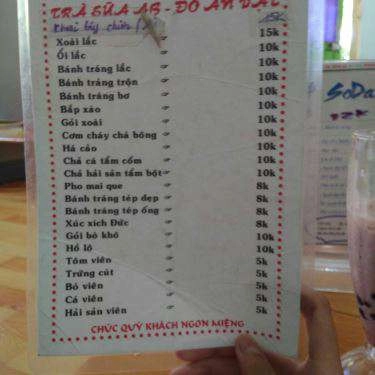 TRÀ SỮA AB - ĐỒ ĂN VẶT
Khoai tây chiên 15k
Xoài lắc 15k
Ổi lắc 10k
Bánh tráng lắc 10k
Bánh tráng trộn 10k
Bánh tráng bơ 10k
Bắp xào 10k
Gỏi xoài 10k
Cơm cháy chà bông 10k
Há cảo 10k
Chả cá tẩm cốm 10k
Chả hải sản tẩm bột 10k
Pho mai que 8k
Bánh tráng tép dẹp 8k
Bánh tráng tép ống 8k
Xúc xích Đức 8k
Gỏi bò khô 10k
Hồ lô 10k
Tôm viên 5k
Trứng cút 5k
Bò viên 5k
Cá viên 5k
Hải sản viên 5k
CHÚC QUÝ KHÁCH NGON MIỆNG
SoDa
12K